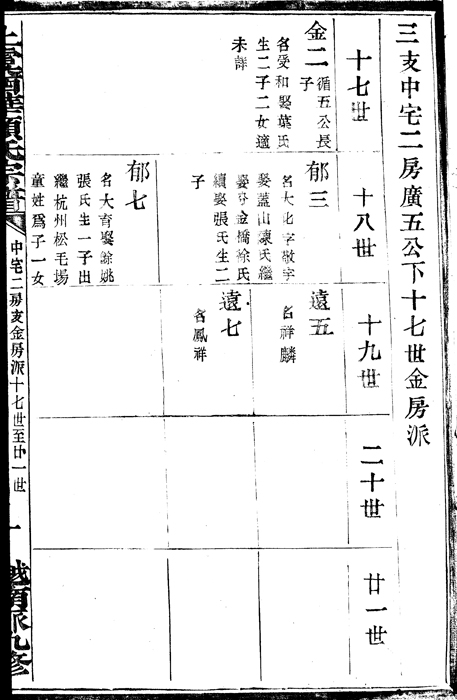 三支中宅二房廣五公下十七世金房派
十七世
十八世
十九世
二十世
廿一世
金二
循五公長
子
名愛和娶葉氏
生二子二女適
未詳
郁三
名大化字敬字
娶蓋山陳氏繼
娶 金橋徐氏
續娶張氏生二
子
郁七
名大育娶餘姚
張氏生一子出
繼杭州松毛塲
童姓爲子一女
遠五
名祥麟
遠七
名鳳祥
項氏宗譜
中宅二房支金房派十七世至廿一世
一
越項派九修